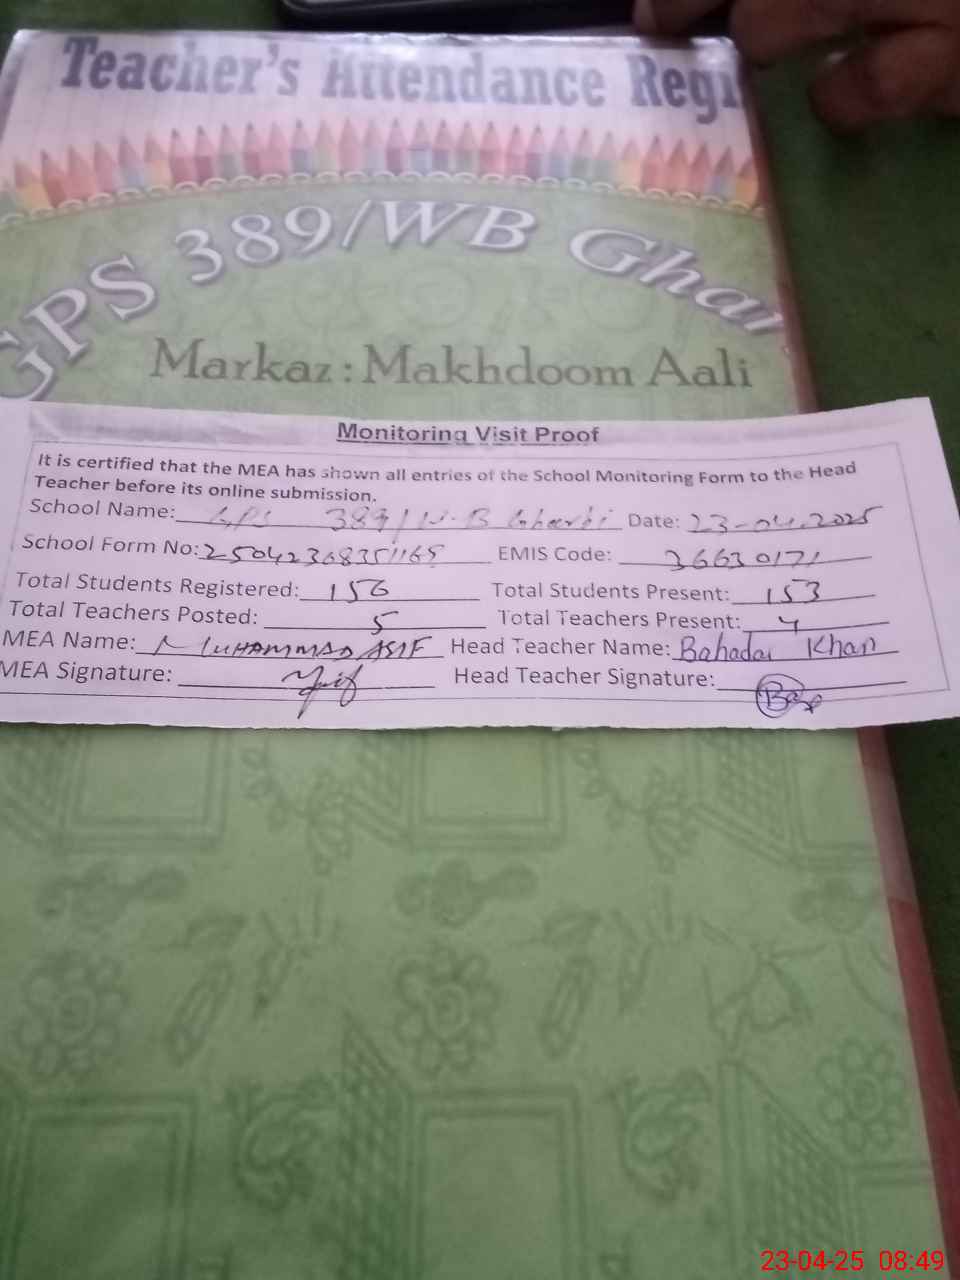 Teacher's Attendance Regi
GPS 389/WB Ghar
Markaz : Makhdoom Aali
Monitoring Visit Proof
It is certified that the MEA has shown all entries of the School Monitoring Form to the Head
Teacher before its online submission.
School Name: GPS 389/W.B Gharbi Date: 23-04.2025
School Form No: EMIS Code: 36630171
Total Students Registered: 156 Total Students Present: 153
Total Teachers Posted: 5 Total Teachers Present: 4
MEA Name: MUHAMMAD ASIF Head Teacher Name: Bahadar Khan
MEA Signature: Head Teacher Signature:
23-04-25 08:49